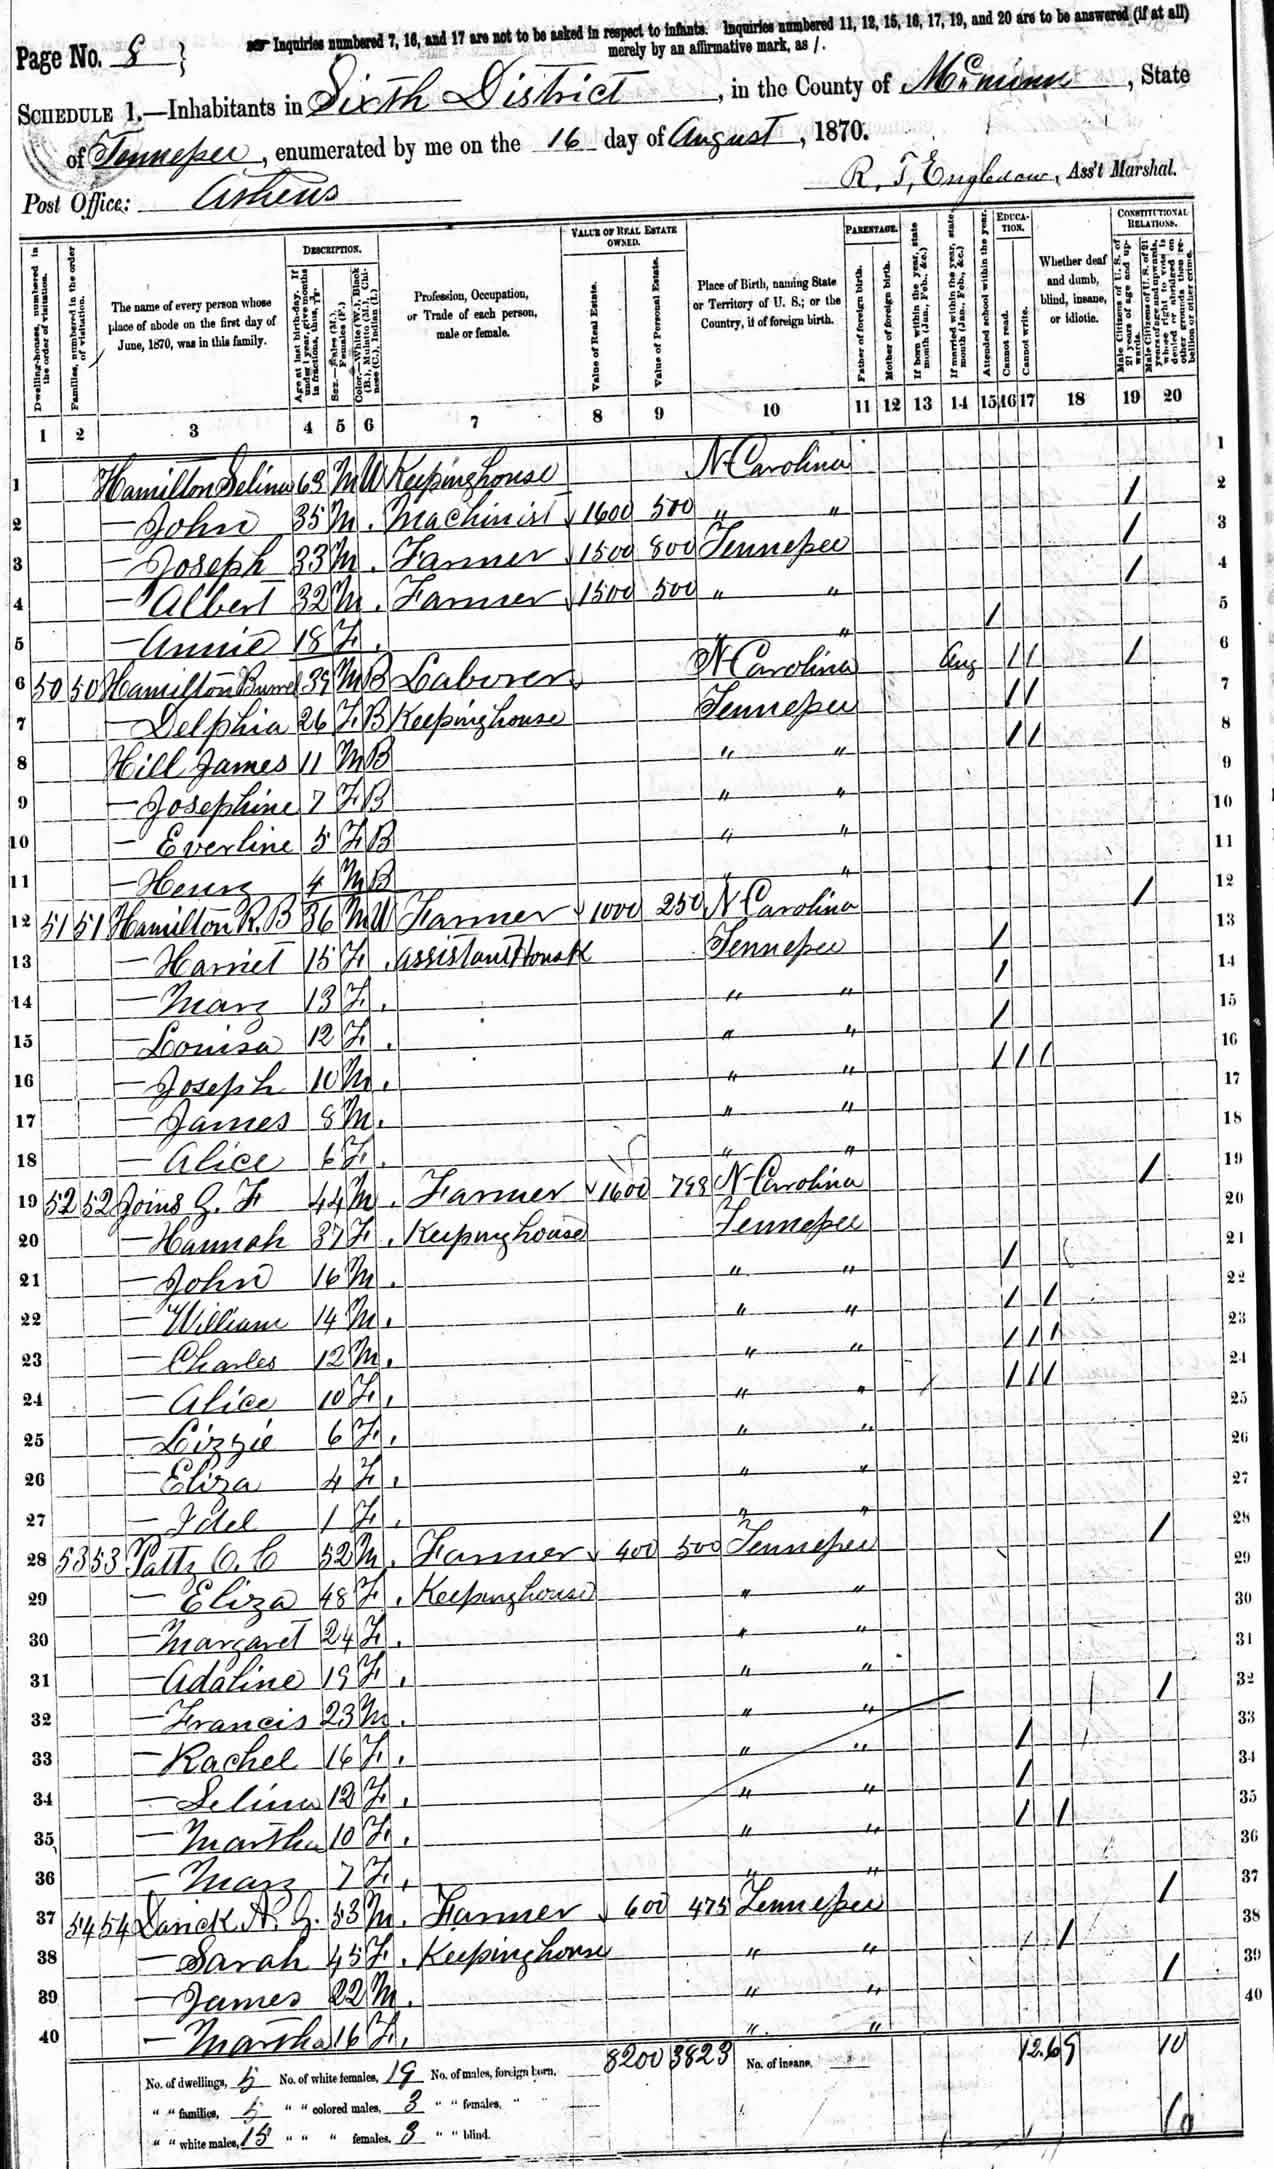 Page No. 8 } Inquiries numbered 7, 16, and 17 are not to be asked in respect to infants. Inquiries numbered 11, 12, 15, 16, 17, 19, and 20 are to be answered (if at all)
merely by an affirmative mark, as /.
SCHEDULE 1.—Inhabitants in Sixth District, in the County of McMinn, State
of Tennessee, enumerated by me on the 16 day of August, 1870.
Post Office: Athens
R. T. Engledow, Ass't Marshal.
Dwelling-houses, numbered in the order of visitation.
Families, numbered in the order of visitation.
The name of every person whose place of abode on the first day of June, 1870, was in this family.
DESCRIPTION.
Age at last birth-day. If under 1 year, give months in fractions, thus, 3/12.
Sex.—Males (M.), Females (F.)
Color.—White (W.), Black (B.), Mulatto (M.), Chinese (C.), Indian (I.)
Profession, Occupation, or Trade of each person, male or female.
VALUE OF REAL ESTATE OWNED.
Value of Real Estate.
Value of Personal Estate.
Place of Birth, naming State or Territory of U. S.; or the Country, if of foreign birth.
PARENTAGE.
Father of foreign birth.
Mother of foreign birth.
If born within the year, state month (Jan., Feb., &c.)
If married within the year, state month (Jan., Feb., &c.)
EDUCATION.
Attended school within the year.
Cannot read.
Cannot write.
Whether deaf and dumb, blind, insane, or idiotic.
CONSTITUTIONAL RELATIONS.
Male Citizens of U. S. of 21 years of age and upwards.
Male Citizens of U. S. of 21 years of age and upwards, whose right to vote is denied or abridged on other grounds than rebellion or other crime.
1 2 3 4 5 6 7 8 9 10 11 12 13 14 15 16 17 18 19 20
1 Hamilton Selina 63 M W Keeping house N Carolina 1
2 — John 35 M . Machinist 1600 500 " " / 2
3 — Joseph 33 M . Farmer 1500 800 Tennessee / 3
4 — Albert 32 M . Farmer 1500 500 " " / 4
5 — Annie 18 F . " " / 5
6 50 50 Hamilton Burrel 39 M B Laborer N Carolina Aug / / / 6
7 — Delphia 26 F B Keeping house Tennessee / / 7
8 Hill James 11 M B " " / / 8
9 — Josephine 7 F B " " 9
10 — Everline 5 F B " " 10
11 — Henry 4 M B " " 11
12 51 51 Hamilton R. B 36 M W Farmer 1000 250 N Carolina / 12
13 — Harriet 15 F . Assistant House K Tennessee / 13
14 — Mary 13 F . " " / 14
15 — Louisa 12 F . " " / 15
16 — Joseph 10 M . " " / / / 16
17 — James 8 M . " " 17
18 — Alice 6 F . " " 18
19 52 52 Joins G. F 44 M . Farmer 1600 798 N Carolina / 19
20 — Hannah 37 F . Keeping house Tennessee 20
21 — John 16 M . " " / 21
22 — William 14 M . " " / / 22
23 — Charles 12 M . " " / / / 23
24 — Alice 10 F . " " / / / 24
25 — Lizzie 6 F . " " 25
26 — Eliza 4 F . " " 26
27 — Idel 1 F . " " 27
28 53 53 Patty O. C 52 M . Farmer 400 500 Tennessee / 28
29 — Eliza 48 F . Keeping house " " 29
30 — Margaret 24 F . " " 30
31 — Adaline 19 F . " " 31
32 — Francis 23 M . " " / 32
33 — Rachel 16 F . " " / 33
34 — Selina 12 F . " " / 34
35 — Martha 10 F . " " / / 35
36 — Mary 7 F . " " 36
37 54 54 A. G. 53 M . Farmer 600 475 Tennessee / 37
38 — Sarah 45 F . Keeping house " " / / 38
39 — James 22 M . " " / 39
40 — Martha 16 F . " " 40
No. of dwellings, 5 No. of white females, 19 No. of males, foreign born, 8200 3823 No. of insane, 12 6 9 10
" " families, 5 " " colored males, 3 " " females, "
" " white males, 15 " " " females, 3 " " blind. 10